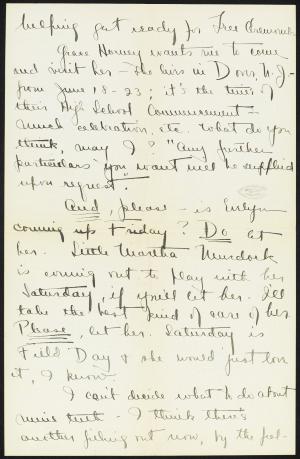 helping get ready for Tree Ceremonies.
Grace Horney wants me to come
and visit her – she lives in Dover, N.J. –
from June 18-23; it's the time of
their High School Commencement –
much celebration, etc. What do you
think, may I? "Any further
particulars you want will be supplied
upon request."
And, please – is Evelyn
coming up Friday? Do let
her. Little Martha Murdock
is coming out to play with her
Saturday, if you'll let her. I'll
take the best kind of care of her.
Please, let her. Saturday is
Field Day & she would just love
it, I know.
I can't decide what to do about
– I think there's
another filling out now, by the feel-